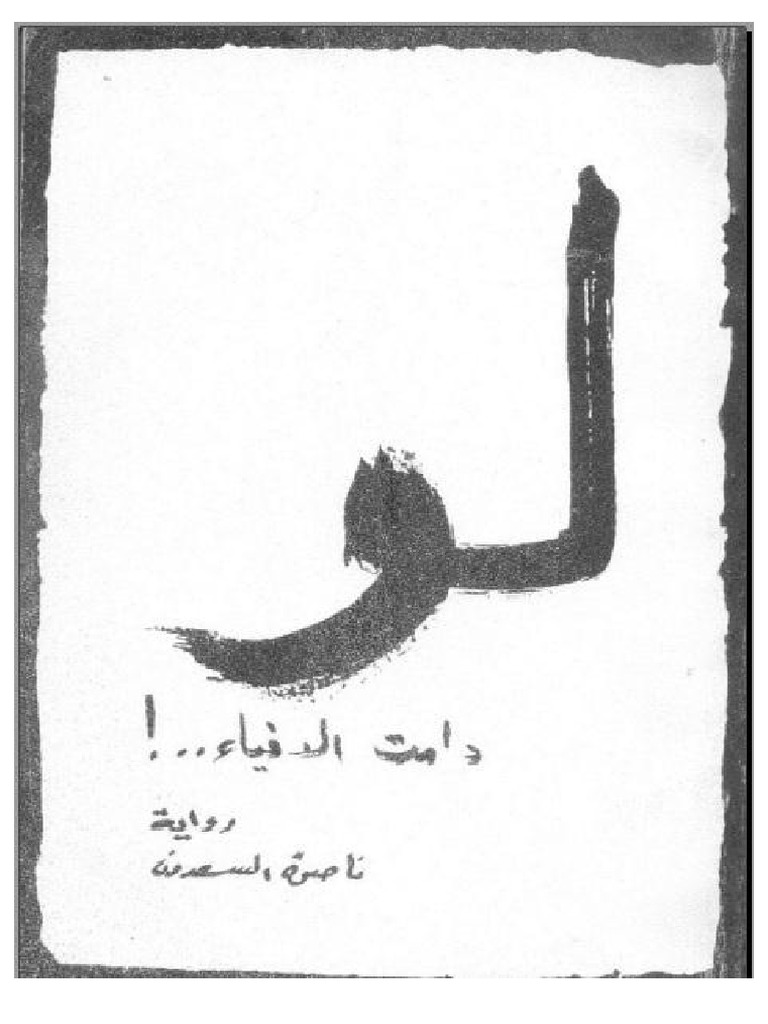 لو
دامت الافياء..!
رواية
ناصرة السعدون